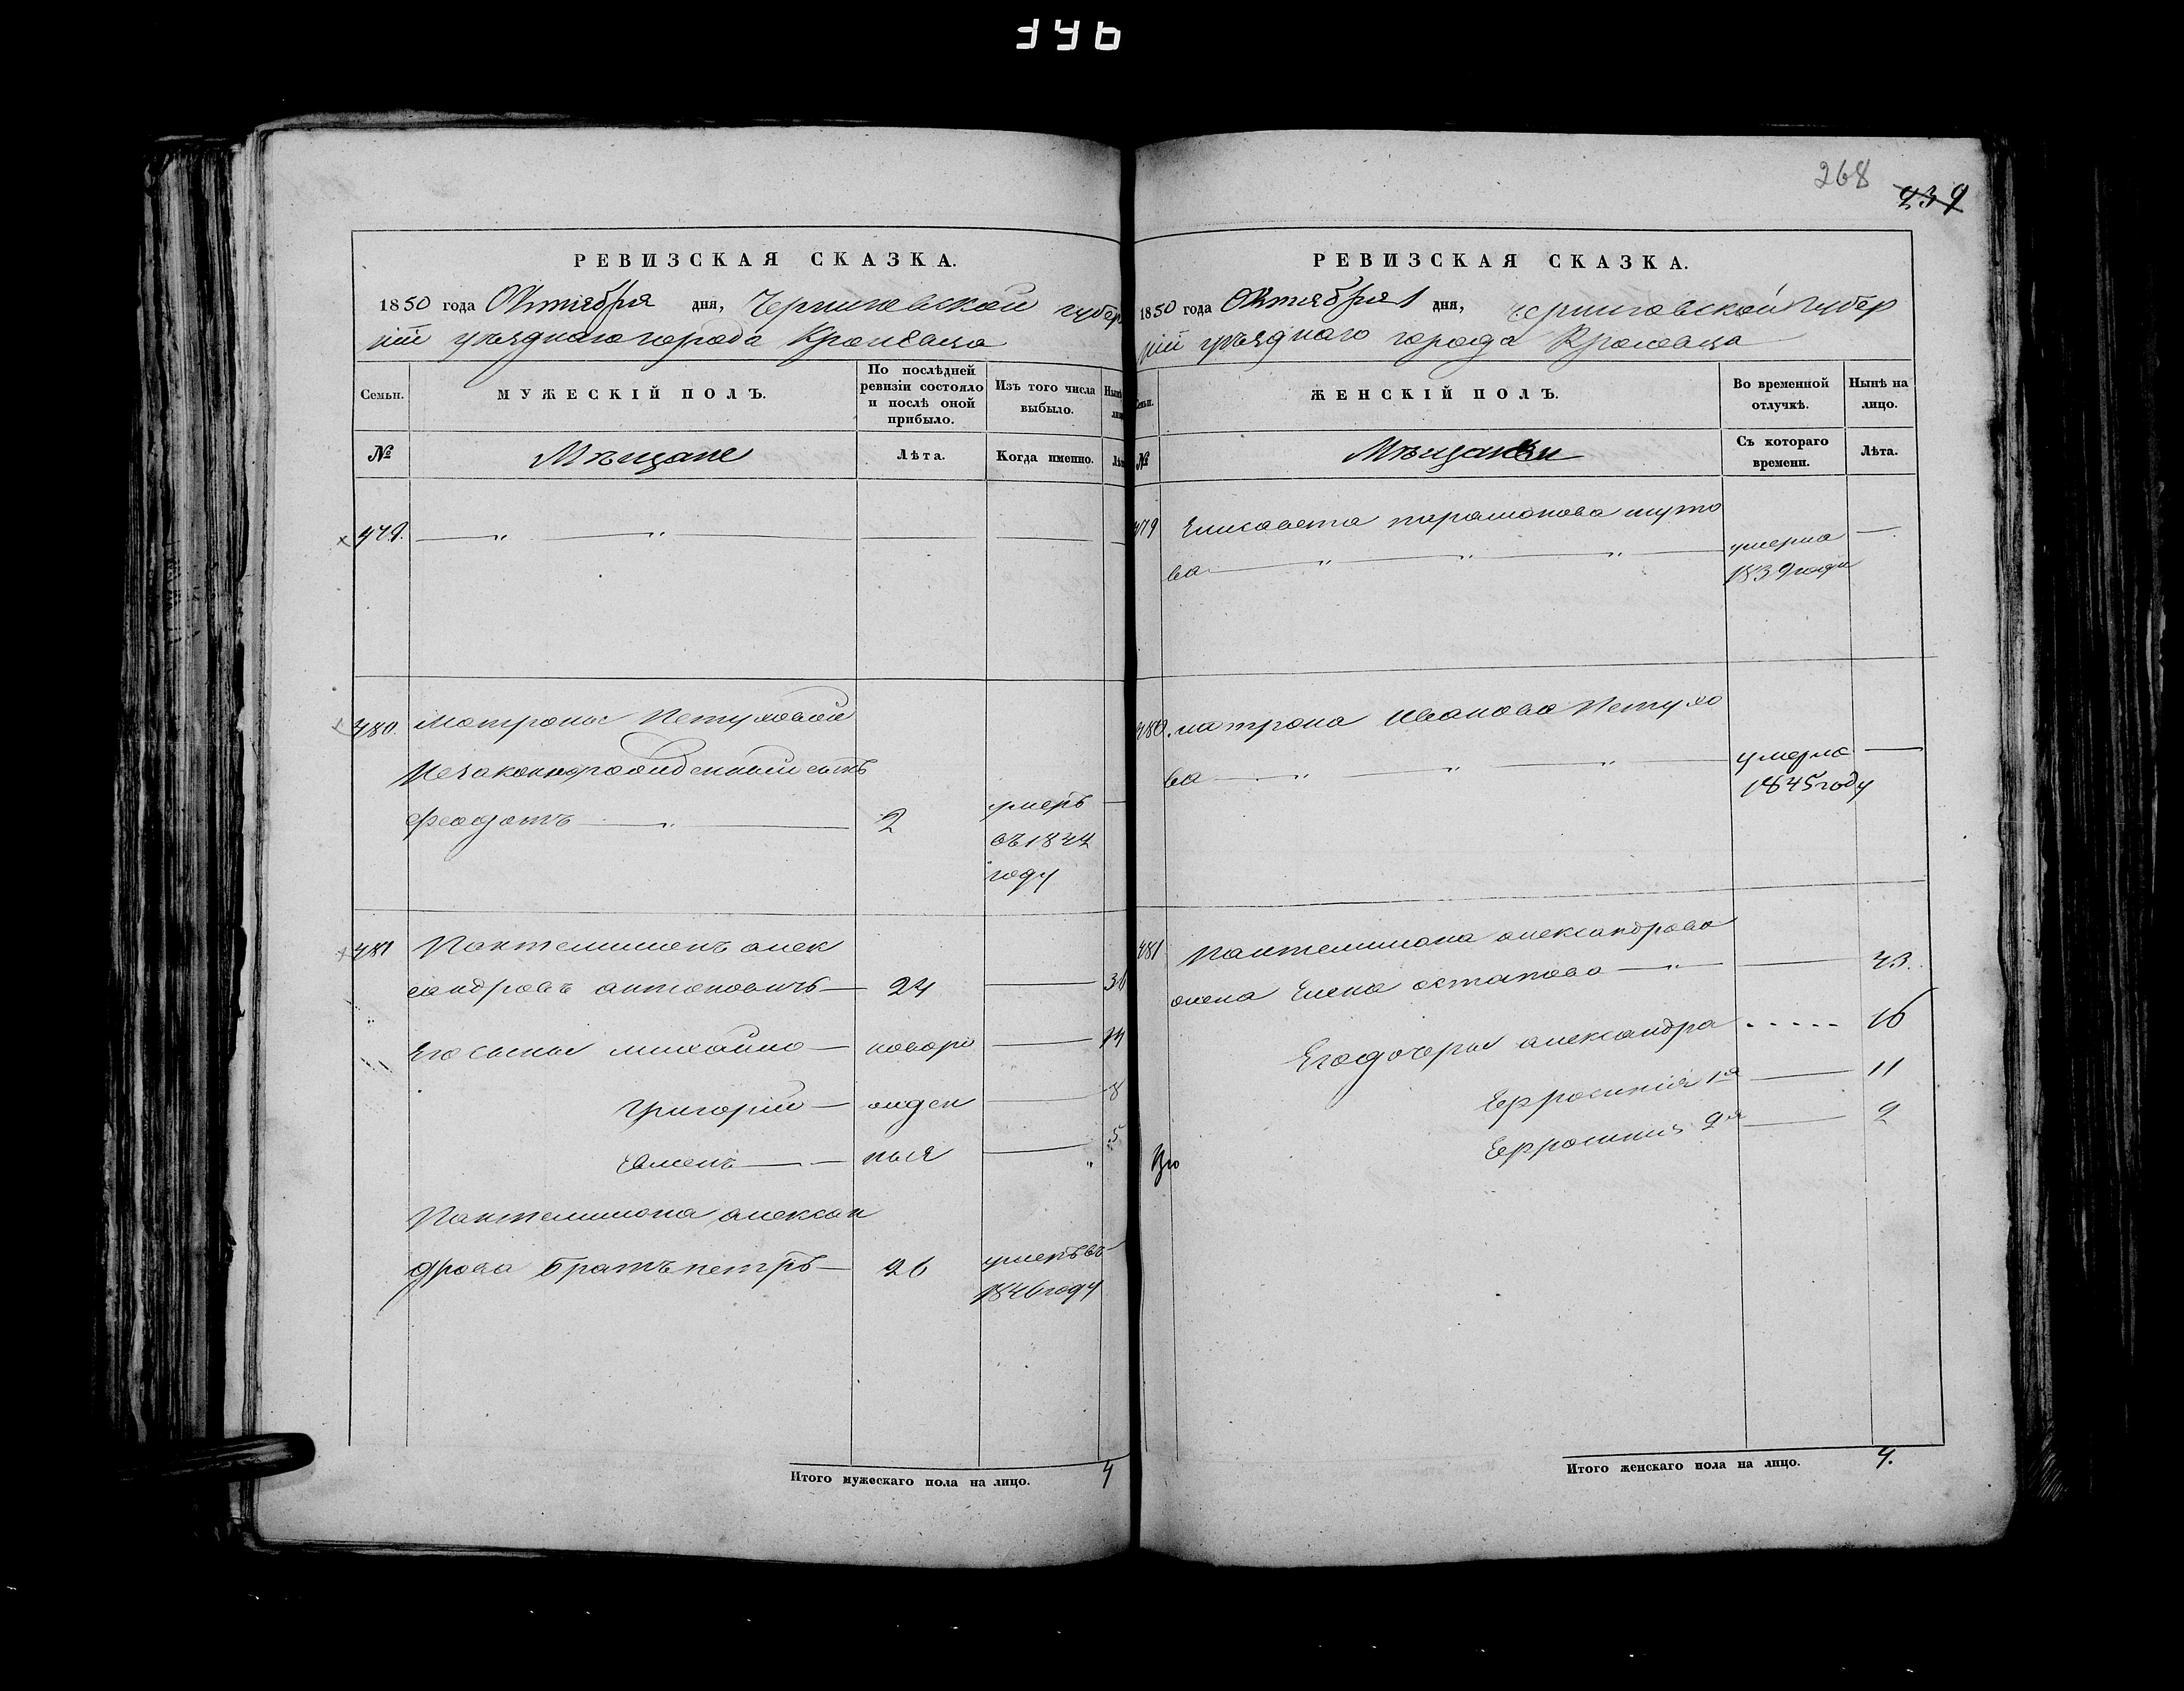 346
РЕВИЗСКАЯ СКАЗКА.
1850 года Октября дня, Черниговской губер
ніи уѣзднаго города Кролевца
Семьи.
МУЖЕСКІЙ ПОЛЪ.
По послѣдней
ревизіи состояло
и послѣ оной
прибыло.
Изъ того числа
выбыло.
№
Мѣщане
Лѣта.
Когда именно.
479.
480. Матроны Петуховой
Незаконнорожденный сынъ
Феодотъ 2 умеръ
въ 1844
году
481 Пантелимонъ Алек
сандровъ Антоновичъ 24 36
Его сыны Михайло новоро 14
Григорій жден 8
Семенъ ныя 5
Пантелимона Алексан
дрова братъ Петръ 26 умеръ въ
1846 году
Итого мужескаго пола на лицо. 4
268
439
РЕВИЗСКАЯ СКАЗКА.
1850 года Октября 1 дня, Черниговской губер
ніи уѣзднаго города Кролевца
ЖЕНСКІЙ ПОЛЪ.
Во временной
отлучкѣ.
Нынѣ на
лицо.
№
Мѣщанки
Съ котораго
времени.
Лѣта.
479 Елисавета Парамонова
ва умерла
1839 года
480. Матрона Иванова Петухо
ва умерла
1845 году
481 Пантелимона Александрова
жена Елена Остапова 43.
Его дочеры Александра 16
Ефросинія 1я 11
Ефросинія 2я 2
Итого женскаго пола на лицо. 4.